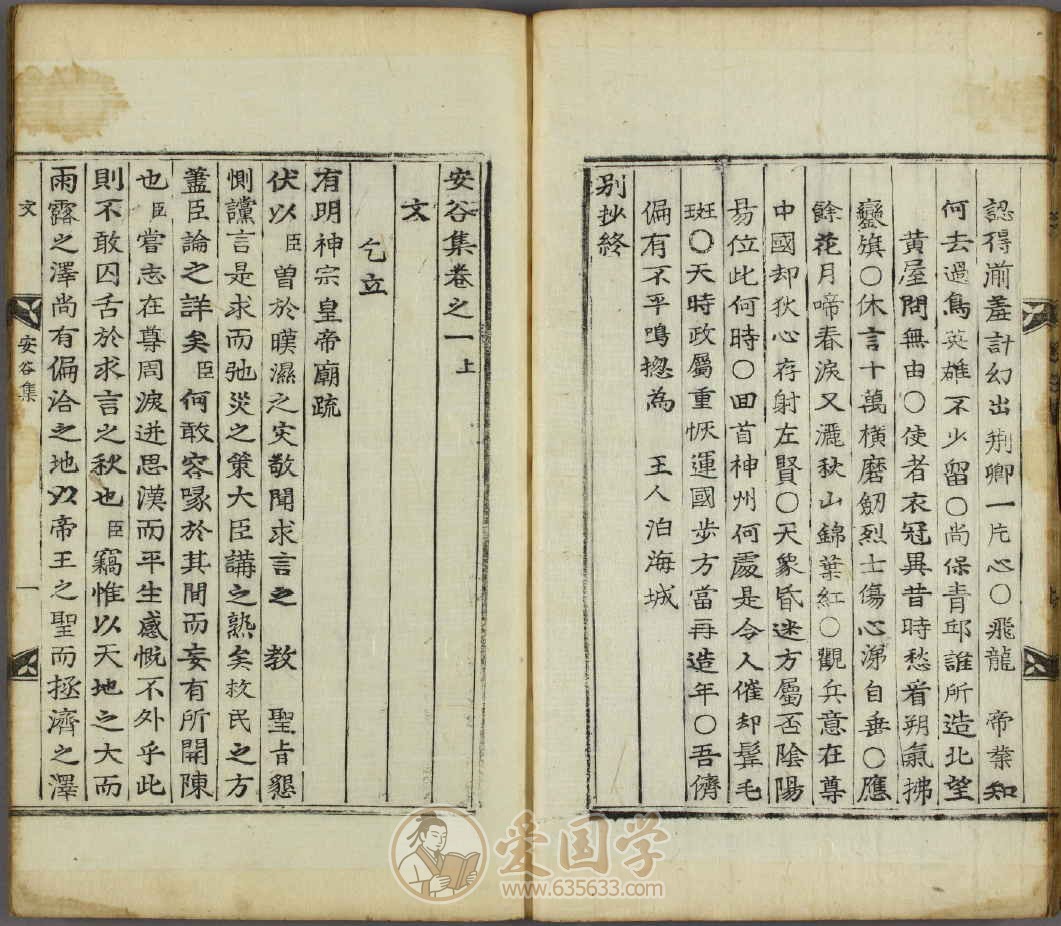 認得前羞計幻出荆卿一片心○飛龍 帝業知
何去過鳥英雄不少留○尚保青邱誰所造北望
黃屋問無由○使者衣冠異昔時愁看朔氣拂
鑾旗○休言十萬橫磨劒烈士傷心涕自垂○應
餘花月啼春淚又灑秋山錦葉紅○觀兵意在尊
中國却狄心存射左賢○天象昏迷方屬否陰陽
易位此何時○回首神州何處是令人催却鬂毛
斑○天時政屬重恢運國步方當再造年○吾儕
偏有不平鳴揔為 王人泊海城
别抄終
安谷集卷之一 上
文
乞立
有明神宗皇帝廟疏
伏以臣曾於暵濕之灾敬聞求言之 教 聖旨懇
惻讜言是求而弛災之策大臣講之熟矣救民之方
藎臣論之詳矣臣何敢容喙於其間而妄有所開陳
也臣嘗志在尊周淚迸思漢而平生感慨不外乎此
則不敢囚舌於求言之秋也臣竊惟以天地之大而
雨露之澤尚有偏洽之地以帝王之聖而拯濟之澤
文
安谷集
一
爱国学
www.635633.com